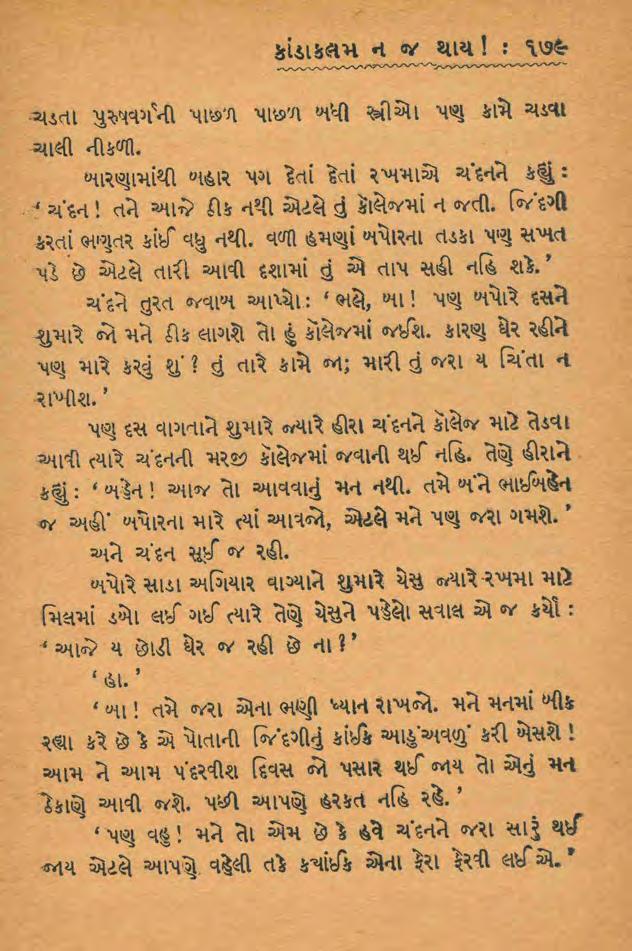 કાંડાકલમ ન જ થાય! : ૧૭૯
ચડતા પુરુષવર્ગની પાછળ પાછળ બધી સ્ત્રીઓ પણ કામે ચડવા
ચાલી નીકળી.
બારણામાંથી બહાર પગ દેતાં દેતાં રખમાએ ચંદનને કહ્યું :
‘ ચંદન! તને આજે ઠીક નથી એટલે તું કૉલેજમાં ન જતી. જિંદગી
કરતાં ભણુતર કાંઈ વધુ નથી. વળી હમણાં બપોરના તડકા પણ સખત
પડે છે એટલે તારી આવી દશામાં તું એ તાપ સહી નહિ શકે.’
ચંદને તુરત જવાબ આપ્યો: ‘ ભલે, બા! પણ બપોરે દસને
શુમારે જો મને ઠીક લાગશે તો હું કૉલેજમાં જઈશ. કારણ ઘેર રહીને
પણ મારે કરવું શું? તું તારે કામે જા; મારી તું જરા ય ચિંતા ન
રાખીશ.’
પણ દસ વાગતાને શુમારે જ્યારે હીરા ચંદનને કૉલેજ માટે તેડવા
આવી ત્યારે ચંદનની મરજી કૉલેજમાં જવાની થઈ નહિ. તેણે હીરાને
કહ્યું: ‘ બહેન! આજ તો આવવાનું મન નથી. તમે બંને ભાઈબહેન
જ અહીં બપોરના મારે ત્યાં આવજો, એટલે મને પણ જરા ગમશે.’
અને ચંદન સૂઈ જ રહી.
બપોરે સાડા અગિયાર વાગ્યાને શુમારે યેસુ જ્યારે રખમા માટે
મિલમાં ડબો લઈ ગઈ ત્યારે તેણે યેસુને પહેલો સવાલ એ જ કર્યો :
‘ આજે ય છોડી ઘેર જ રહી છે ના?’
‘ હા.’
‘ બા! તમે જરા એના ભણી ધ્યાન રાખજો. મને મનમાં બીક
રહ્યા કરે છે કે એ પોતાની જિંદગીનું કાંઈક આડુંઅવળું કરી બેસશે!
આમ ને આમ પંદરવીશ દિવસ જો પસાર થઈ જાય તો એનું મન
ઠેકાણે આવી જશે. પછી આપણે હરકત નહિ રહે.’
‘ પણ વહુ! મને તો એમ છે કે હવે ચંદનને જરા સારું થઈ
જાય એટલે આપણે વહેલી તકે ક્યાંઈક એના ફેરા ફેરવી લઈએ.’